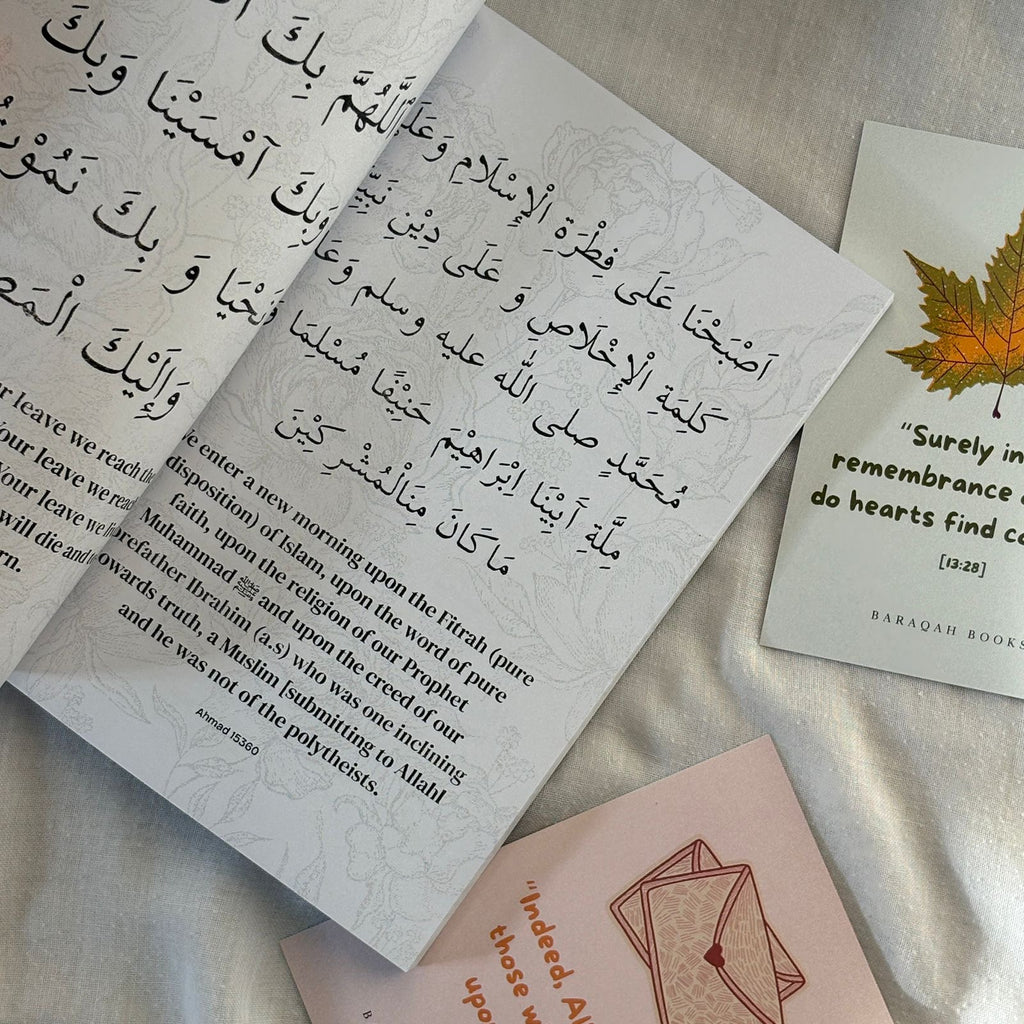 بِكَ
اَللّٰهُمَّ بِكَ
وَبِكَ اَمْسَيْنَا وَبِكَ
نَحْيَا وَ بِكَ نَمُوْتُ
وَاِلَيْكَ
r leave we reach the
Your leave we reac
Your leave we li
will die and
rn.
اَصْبَحْنَا عَلَى فِطْرَةِ الْاِسْلَامِ وَعَلَ
كَلِمَةِ الْاِخْلَاصِ وَ عَلَى دِيْنِ نَبِّيِ
مُحَمَّدٍ صلى اللّٰه عليه وسلم وَعَل
مِلَّةِ اَبِيْنَا اِبْرَاهِيْمَ حَنِيْفًا مُسْلِمًا
مَاكَانَ مِنَالْمُشْرِكِيْنَ
We enter a new morning upon the Fitrah (pure
disposition) of Islam, upon the word of pure
faith, upon the religion of our Prophet
Muhammad ﷺ and upon the creed of our
orefather Ibrahim (a.s) who was one inclining
owards truth, a Muslim [submitting to Allahl
and he was not of the polytheists.
Ahmad 15360
"Surely in
remembrance
do hearts find co
[13:28]
BARAQAH BOOKS
"Indeed, Al
those w
upo
B